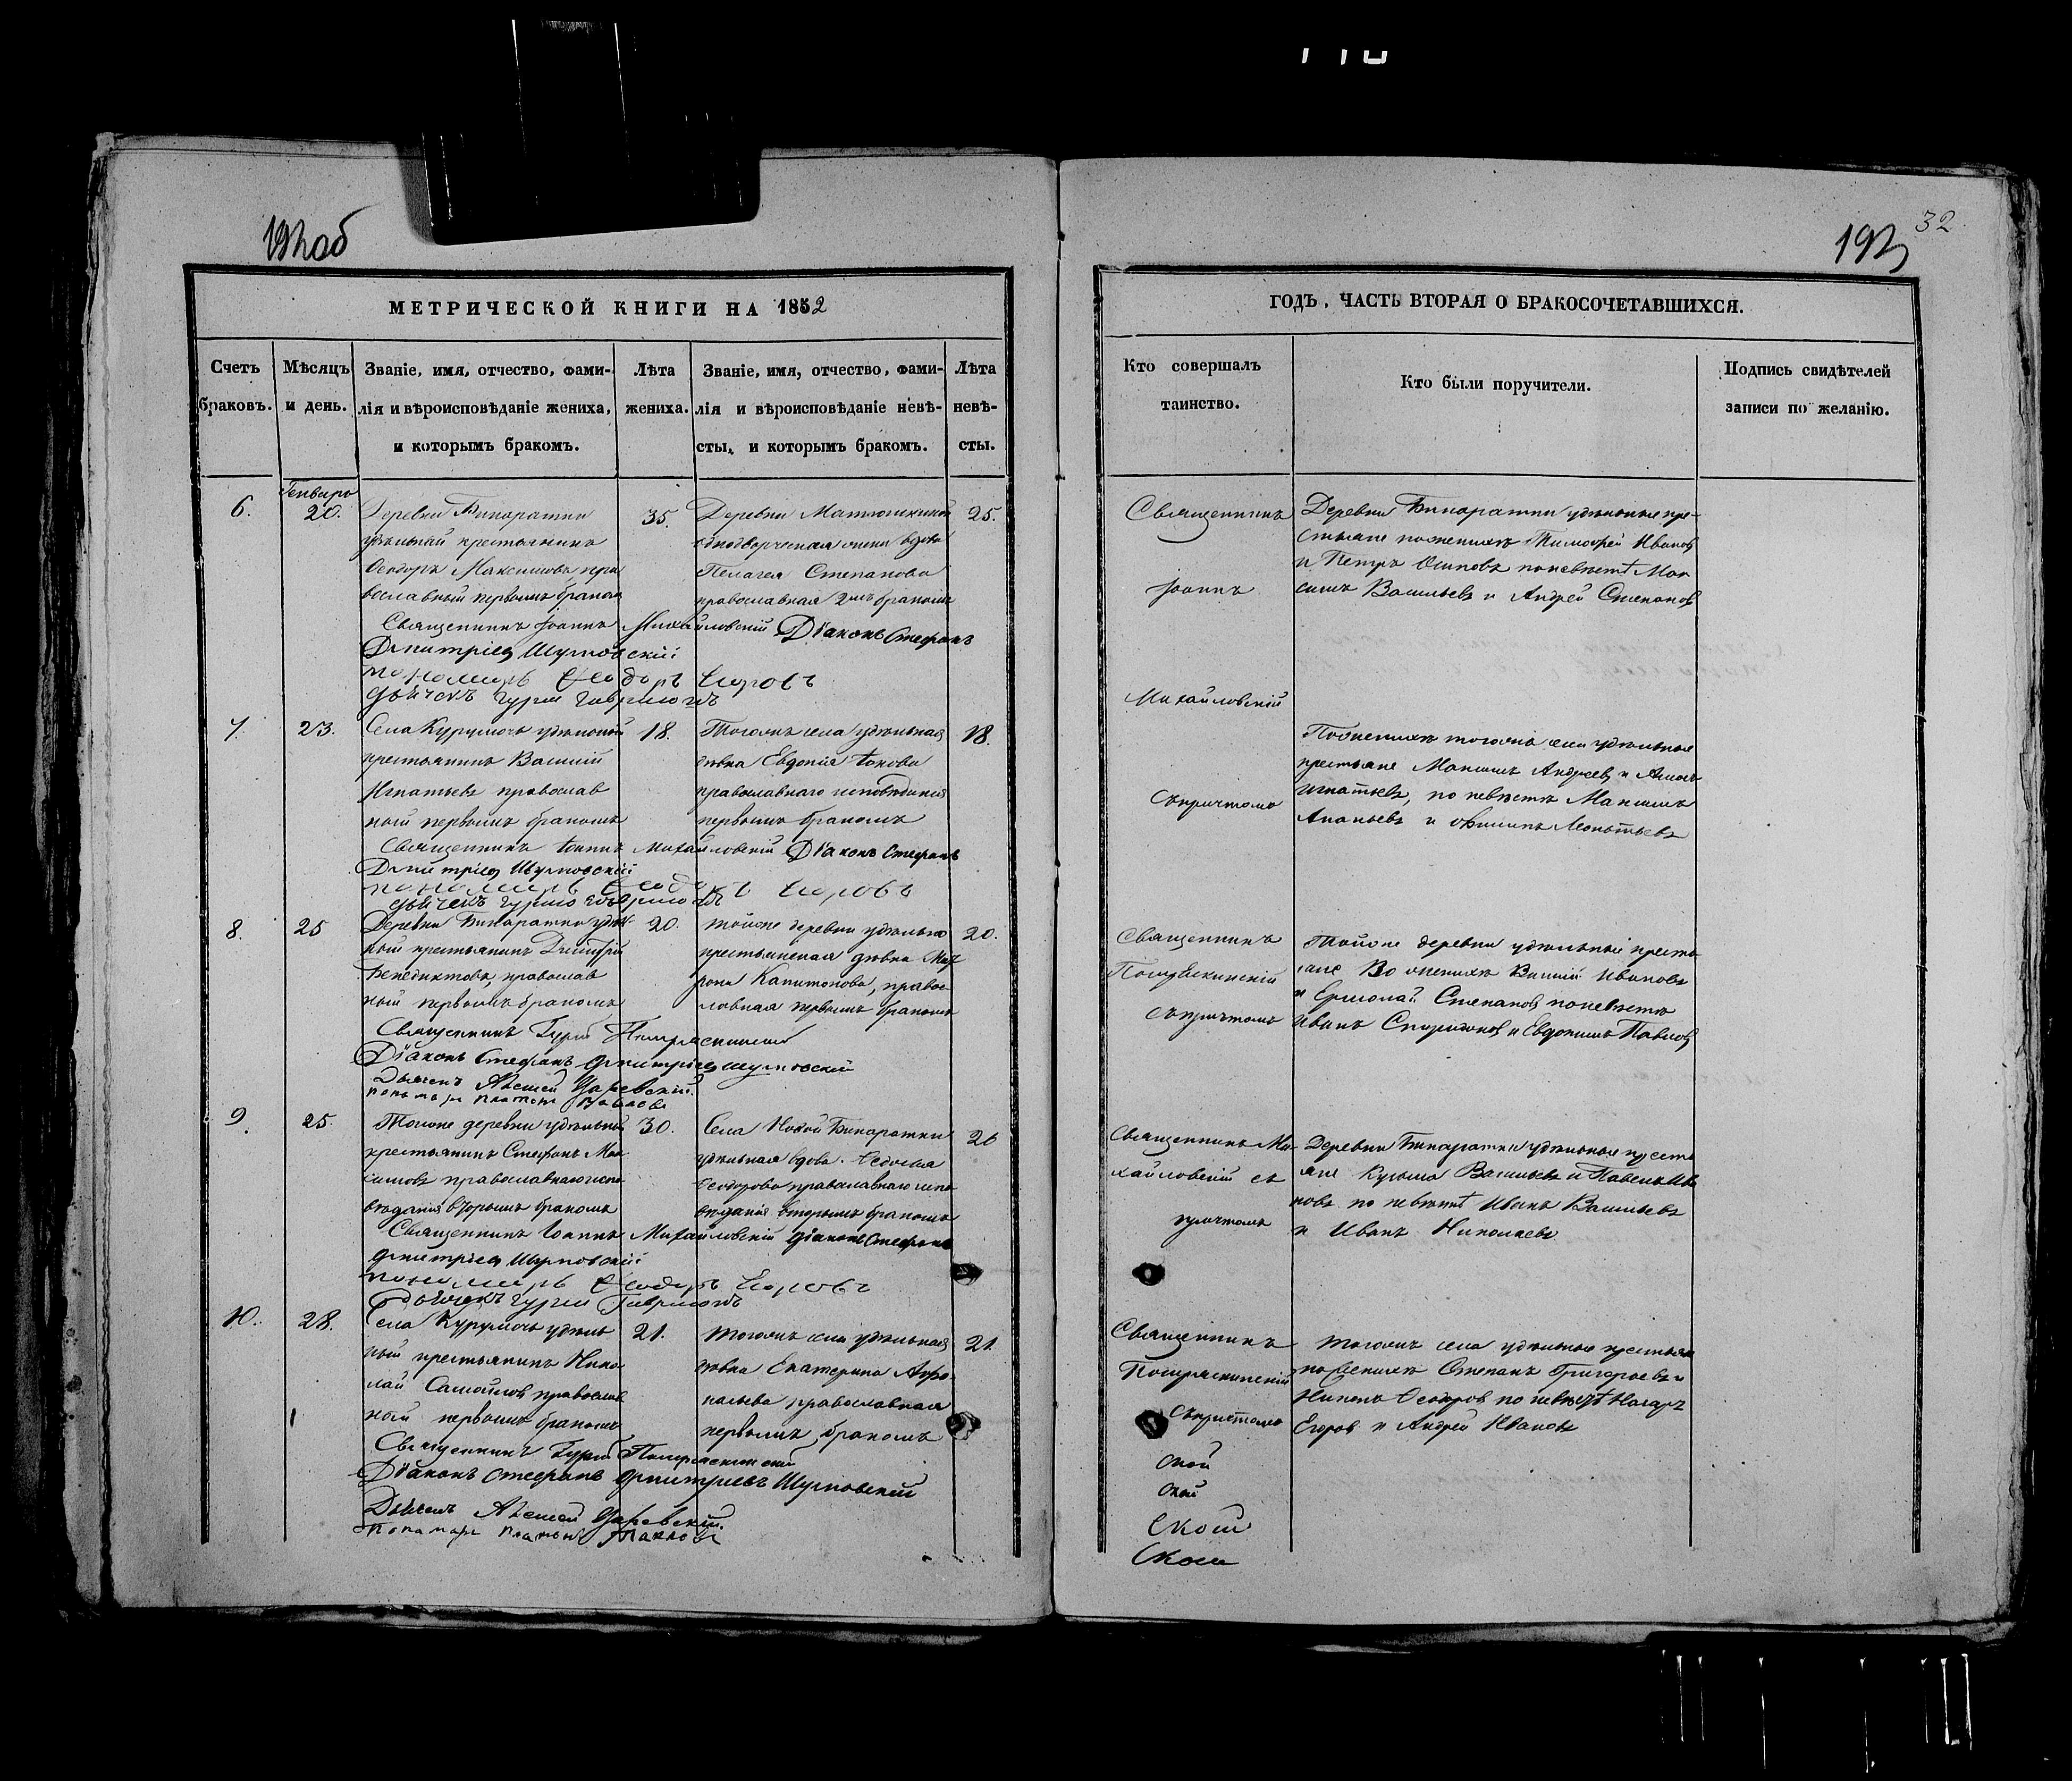 192об
МЕТРИЧЕСКОЙ КНИГИ НА 1852
Счетъ браковъ.
Мѣсяцъ и день.
Званіе, имя, отчество, фами-
лія и вѣроисповѣданіе жениха,
и которымъ бракомъ.
Лѣта жениха.
Званіе, имя, отчество, фами-
лія и вѣроисповѣданіе невѣ-
сты, и которымъ бракомъ.
Лѣта невѣ-
сты.
6.
Генваря
20.
Деревни Бинаратки
удѣльный крестьянинъ
Ѳеодоръ Максимовъ пра
вославный первымъ бракомъ
35.
Деревни
вдова
Пелагея Степанова
православная 2мъ бракомъ
25.
Священникъ Іоаннъ Михайловскій Діаконъ Стефанъ
Дмитріев Шумовскій
пономарь Ѳеодоръ Егоровъ
дьячекъ Гурій Гавриловъ
7.
23.
Села Курумочь удѣльной
крестьянинъ Василій
Игнатьевъ православ
ный первымъ бракомъ
18.
Тогожъ села удѣльная
дѣвка Евдокія
православнаго исповѣданія
первымъ бракомъ
18.
Священникъ Іоаннъ Михайловскій Діаконъ Стефанъ
Дмитріев Шумовскій
пономарь Ѳеодоръ Егоровъ
дьячекъ Гурій Гавриловъ
8.
25
Деревни Бинаратки удѣль
ный крестьянинъ Димитрій
Бенедиктовъ, православ
ный первымъ бракомъ
20.
тойже деревни удѣльно
крестьянская дѣвка Мат
рона Капитонова, право
славная первымъ бракомъ
20.
Священникъ Гурій
Діаконъ Стефанъ Дмитріев Шумовскій
Дьячекъ Алексей Царевскій.
понамарь Платонъ Павловъ
9.
25.
Тойже деревни удѣльный
крестьянинъ Стефанъ Мак
симовъ православнаго испо
вѣданія вторымъ бракомъ
30.
Села Новой Бинаратки
удѣльная вдова Ѳедосья
Ѳеодорова православнаго испо
вѣданія вторымъ бракомъ
26
Священникъ Іоаннъ Михайловскій Діаконъ Стефанъ
Дмитріев Шумовскій
пономарь Ѳеодоръ Егоровъ
Дьячекъ Гурій Гавриловъ
10.
28.
Села Курумочь удѣль
ный крестьянинъ Нико
лай Самойлов православ
ный первымъ бракомъ
21.
тогожъ села удѣльная
дѣвка Екатерина Афо
насьева православная
первымъ бракомъ
21
Священникъ Гурій
Діаконъ Стефанъ Дмитриевъ Шумовскій
Дьячекъ Алексей Царевскій.
понамарь Платонъ Павловъ
193
32
ГОДЪ, ЧАСТЬ ВТОРАЯ О БРАКОСОЧЕТАВШИХСЯ.
Кто совершалъ
таинство.
Кто были поручители.
Подпись свидѣтелей
записи по желанію.
Священникъ
Іоаннъ
Михайловскій
съ причтомъ
Деревни Бинаратки удѣльные кре-
стьяне по женихѣ Тимофей Иванов
и Петръ Осиповъ по невѣстѣ Мак
симъ Васильевъ и Андрей Степанов
По женихѣ тогожъ села удѣльные
крестьяне Максимъ Андреев и
Игнатьевъ, по невѣстѣ Максимъ
Ананьевъ и Леонтьевъ
Священникъ
съ причтомъ
Тойже деревни удѣльные кресть
яне По женихѣ Василій Ивановъ
и Ермолай Степанов по невѣстѣ
Иванъ Спиридонов и Евдокимъ Павлов
Священникъ Ми
хайловскій съ
причтомъ
Деревни Бинаратки удѣльные кресть
яне Кузьма Васильевъ и Павелъ Ива
новъ по невѣстѣ Иванъ Васильевъ
и Иванъ Николаевъ
Священникъ
съ причтомъ
тогожъ села удѣльные крестьяне
по женихѣ Степанъ Григорьевъ и
Никита Ѳеодоров по невѣстѣ Назаръ
Егоров и Андрей Ивановъ
ской
ской
Скои
Скои